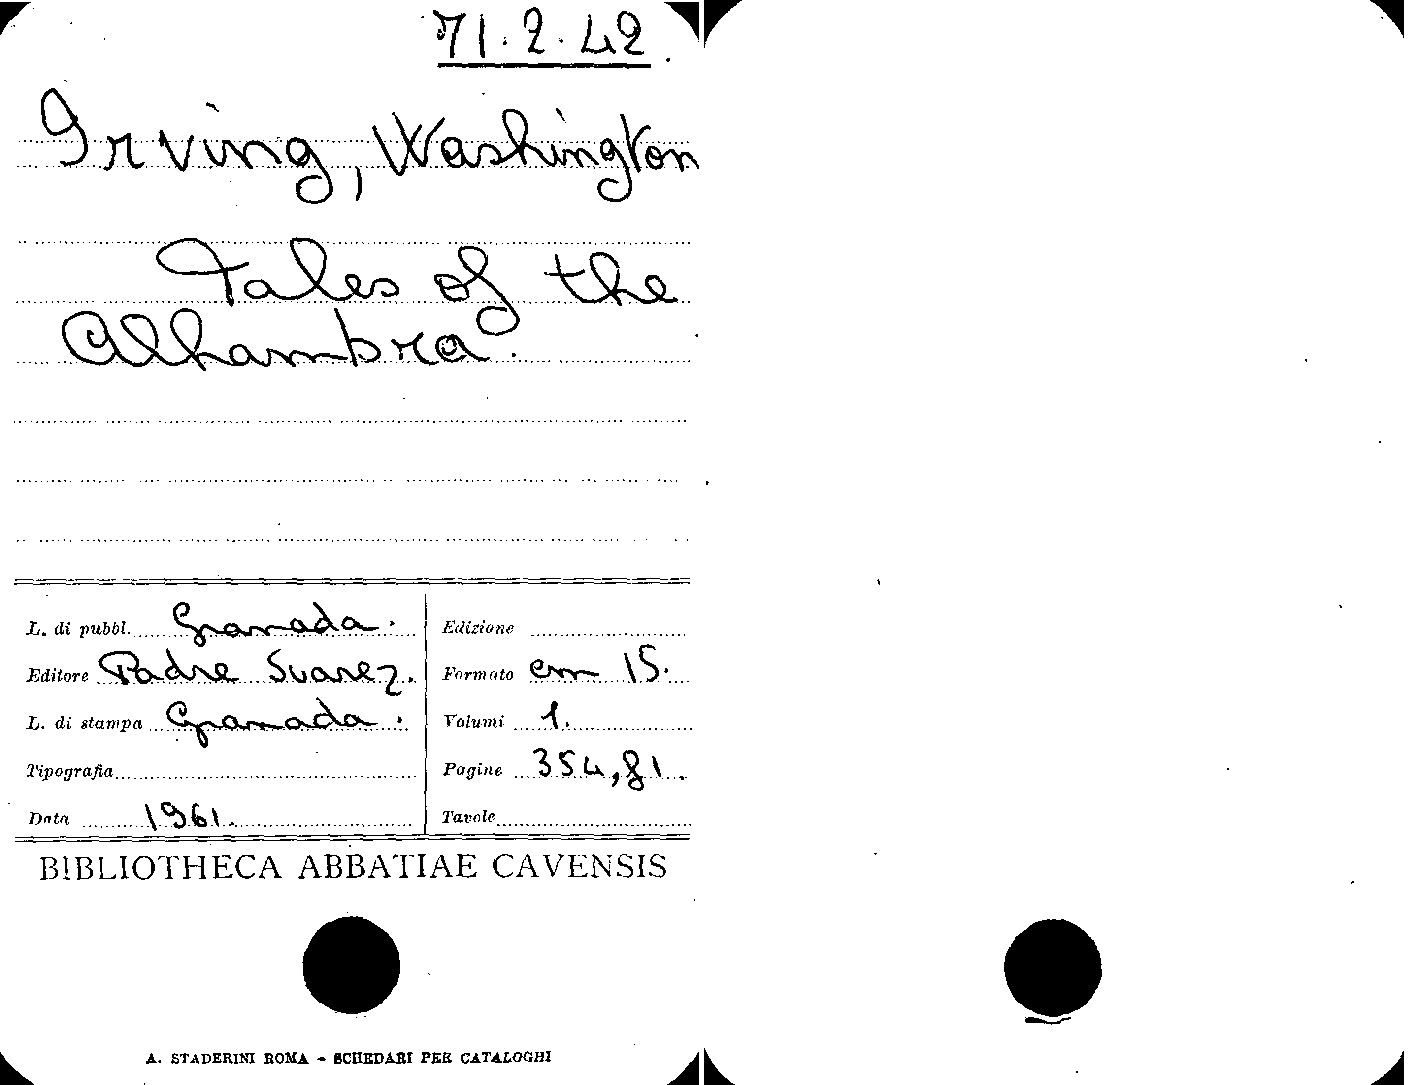 71.2.42
Irving, Washington
Tales of the
Alhambra.
L. di pubbl. Granada.
Editore Padre Suarez.
L. di stampa Granada.
Tipografia
Data 1961.
Edizione
Formato cm 15.
Volumi 1.
Pagine 354, 81.
Tavole
BIBLIOTHECA ABBATIAE CAVENSIS
A. STADERINI ROMA - SCHEDARI PER CATALOGHI